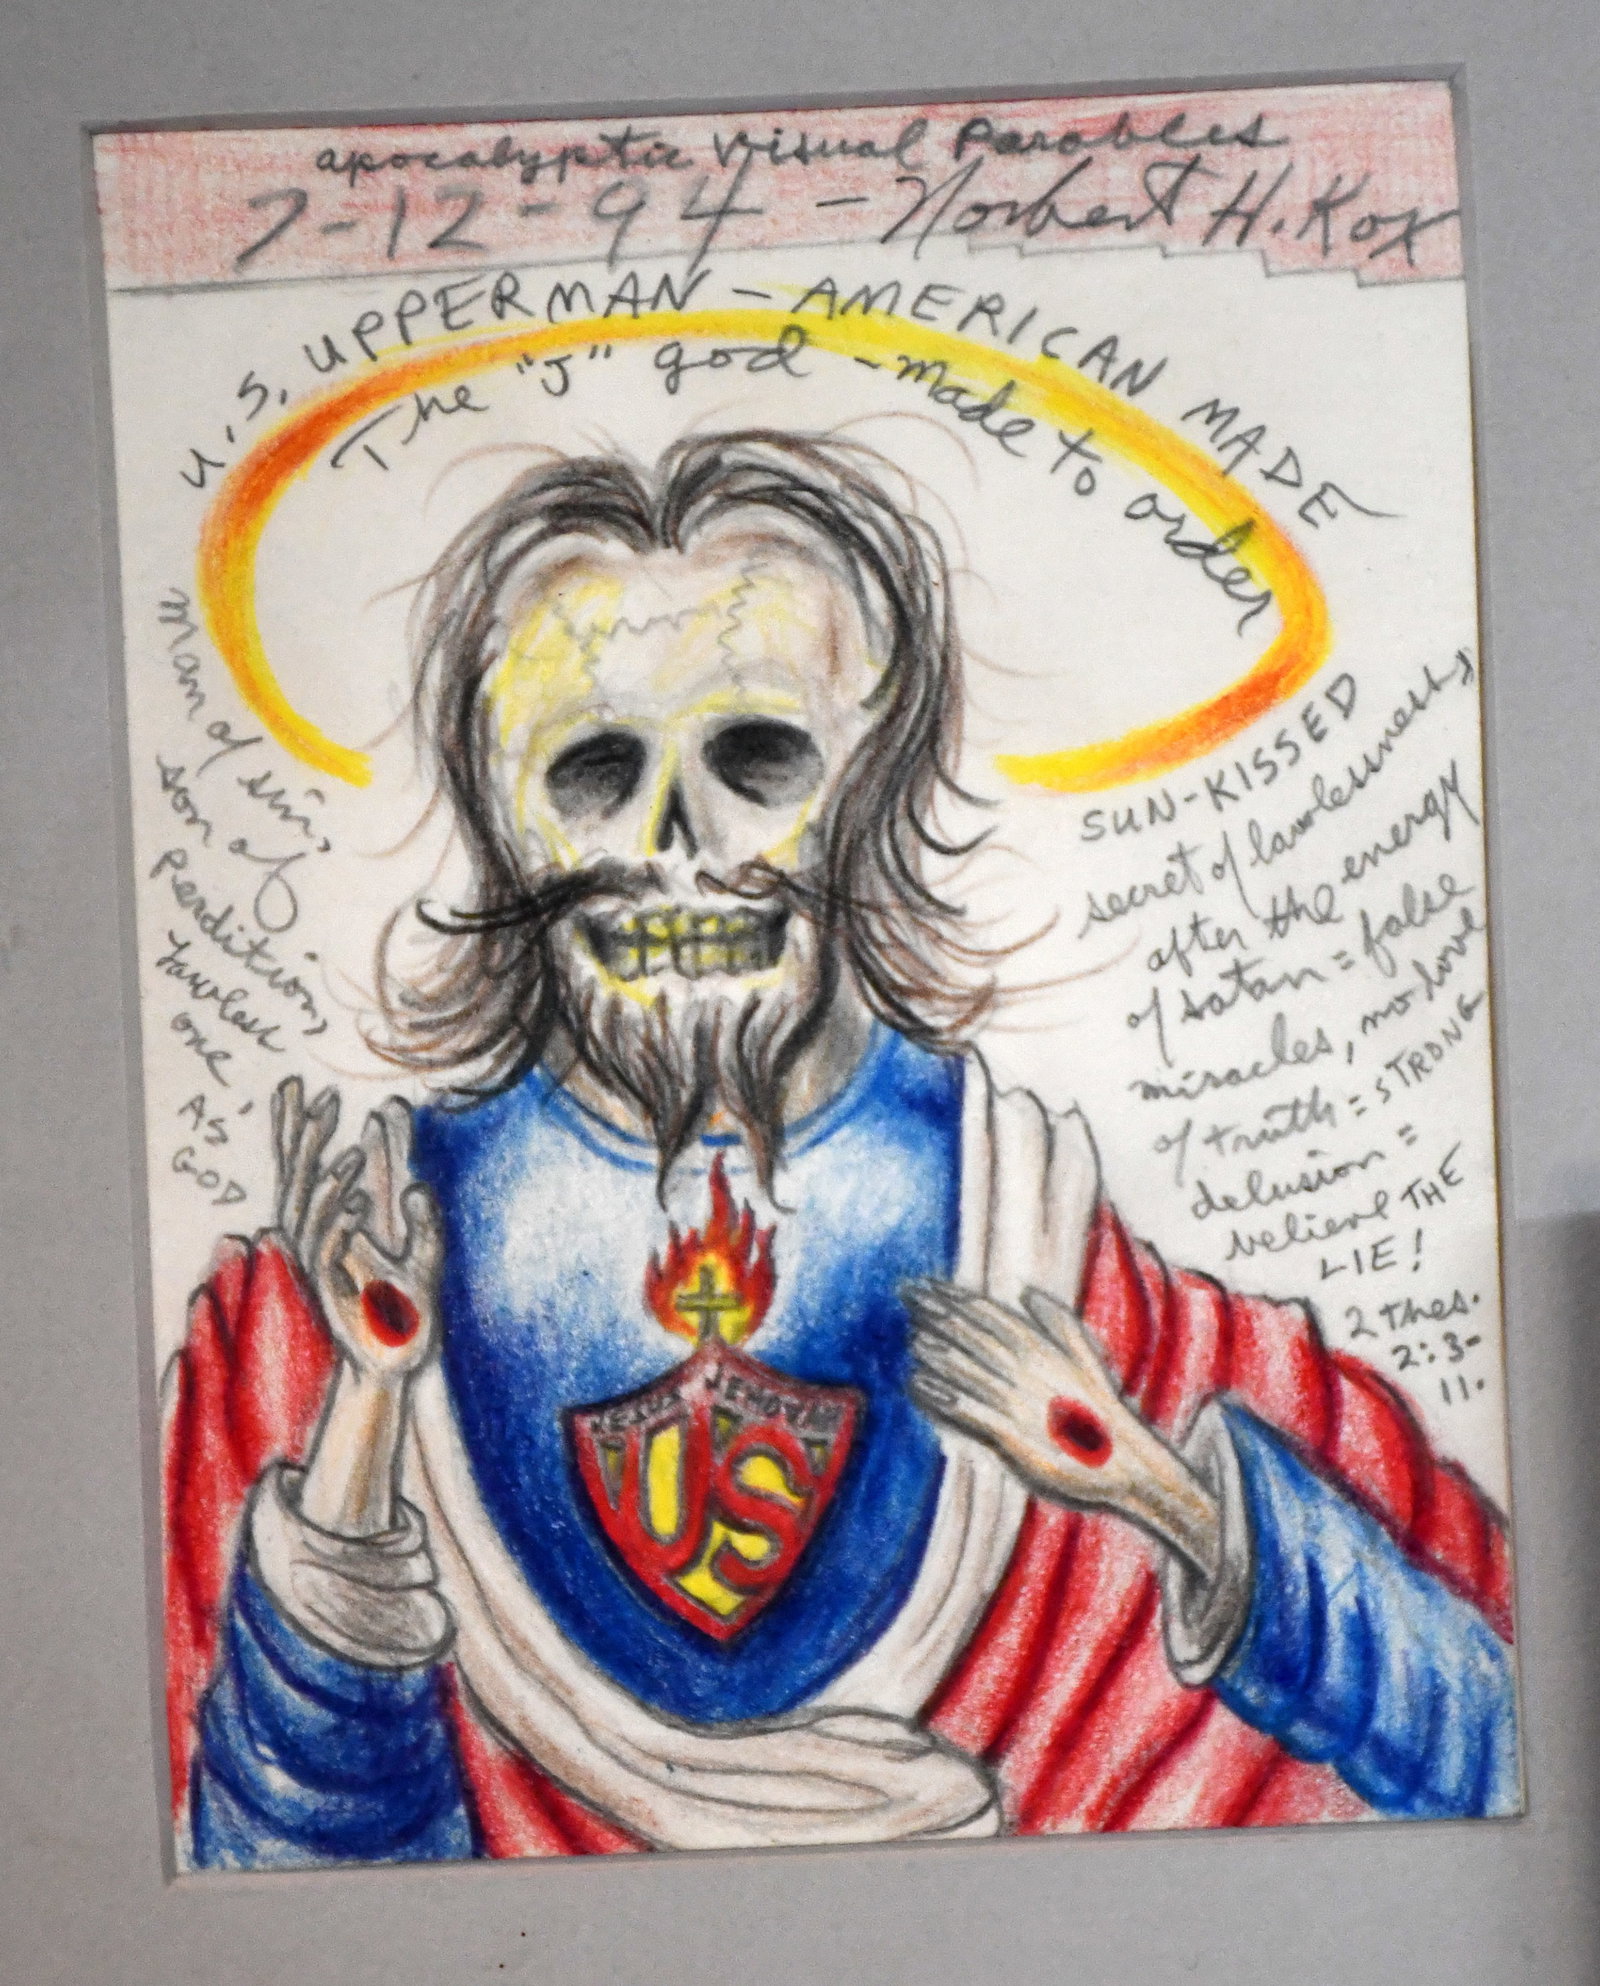 apocalyptic visual Parables
7-12-94 - Norbert H. Kox
U.S. UPPERMAN - AMERICAN MADE
The "J" god - made to order
man of sin,
son of
Perdition,
Lawless
one,
AS
GOD
SUN-KISSED
secret of lawlessness,
after the energy
of satan = false
miracles, no love
of truth = STRONG
delusion =
believe THE
LIE!
2 Thes.
2:3-
11.
JESUS JEHOVAH
US